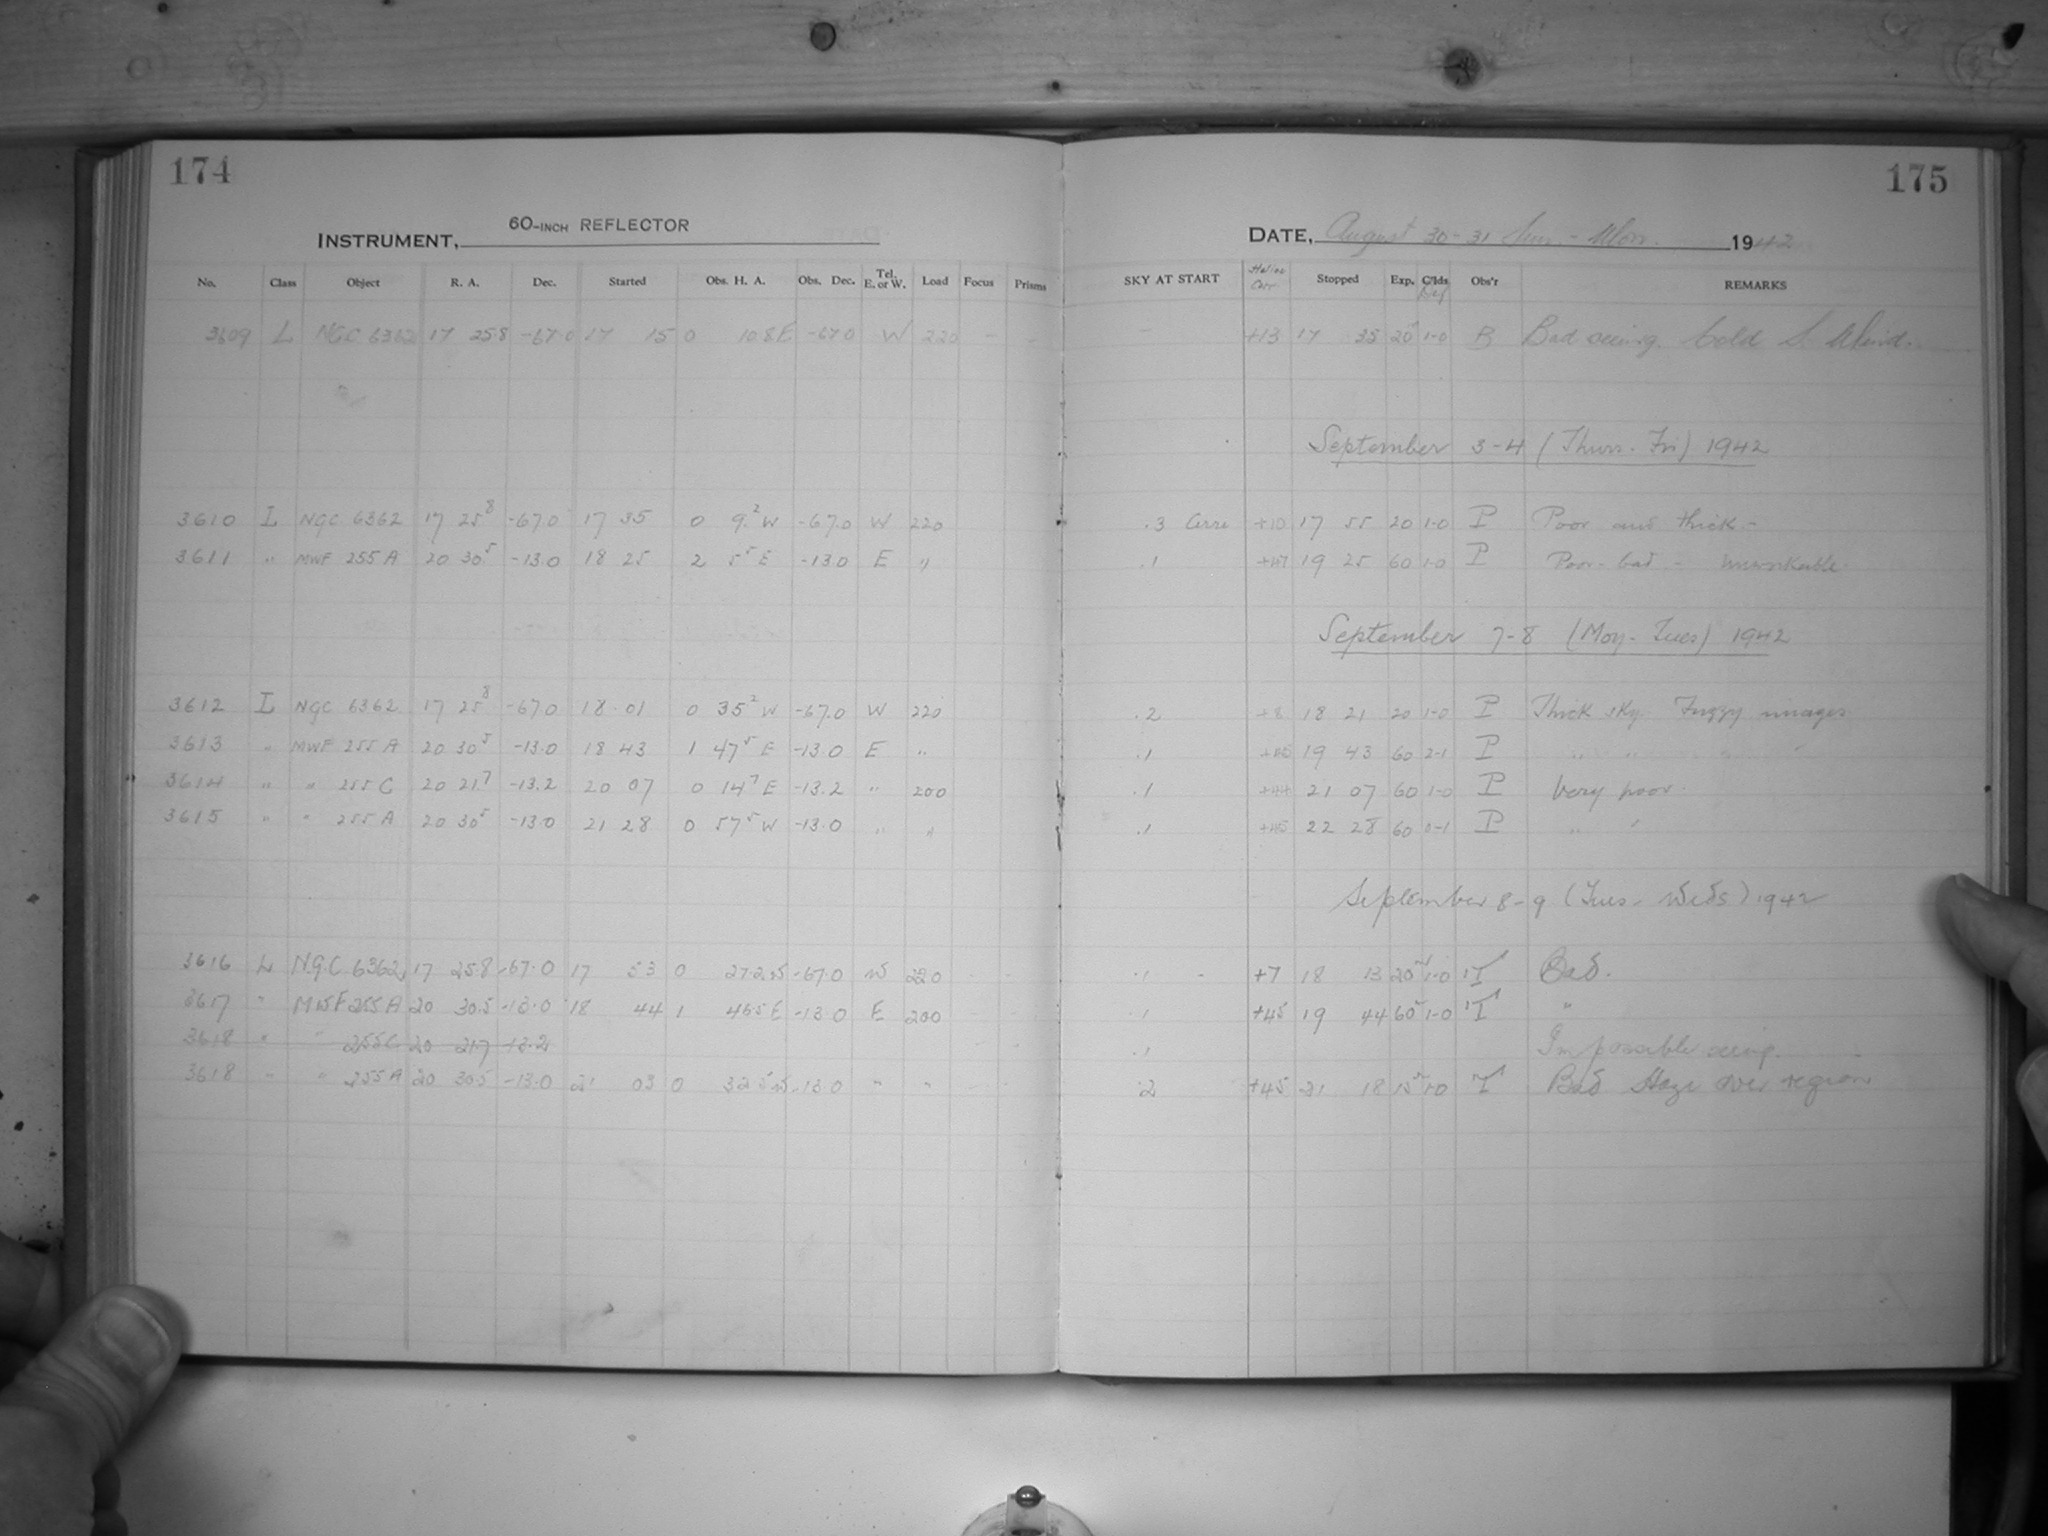 174
175
INSTRUMENT, 60-INCH REFLECTOR
DATE, August 30-31 Sun.-Mon. 1942
No. Class Object R. A. Dec. Started Obs. H. A. Obs. Dec. Tel. E. or W. Load Focus Prisms SKY AT START Helioc Corr Stopped Exp. C'lds Def Obs'r REMARKS
3609 L NGC 6362 17 25.8 -67.0 17 15 0 10.8 E -67.0 W 220 - - - +13 17 35 20 1-0 B Bad seeing. Cold S. Wind.
September 3-4 (Thurs.-Fri) 1942
3610 I NGC 6362 17 25⁸ -67.0 17 35 0 9.² W -67.0 W 220 .3 Cirri +10 17 55 20 1-0 P Poor and thick -
3611 " MWF 255 A 20 30⁵ -13.0 18 25 2 5⁵ E -13.0 E " .1 +47 19 25 60 1-0 P Poor-bad - Unworkable
September 7-8 (Mon-Tues) 1942
3612 I NGC 6362 17 25⁸ -67.0 18 01 0 35² W -67.0 W 220 .2 +8 18 21 20 1-0 P Thick sky Fuzzy images
3613 " MWF 255 A 20 30⁵ -13.0 18 43 1 47⁵ E -13.0 E " .1 19 43 60 2-1 P " " " "
3614 " " 255 C 20 21.7 -13.2 20 07 0 14⁷ E -13.2 " 200 .1 +44 21 07 60 1-0 P Very poor.
3615 " " 255 A 20 30⁵ -13.0 21 28 0 57⁵ W -13.0 " " .1 +45 22 28 60 0-1 P " "
September 8-9 (Tues- Weds) 1942
3616 L N.G.C 6362 17 25.8 -67.0 17 53 0 27.2 W -67.0 W 220 - - .1 - +7 18 13 20 1-0 T Bad.
3617 " MWF 255 A 20 30.5 -13.0 18 44 1 46.5 E -13.0 E 200 - - .1 +45 19 44 60 1-0 T "
3618 " " 255 C 20 21.7 -13.2 .1 Impossible seeing.
3618 " " 255 A 20 30.5 -13.0 21 03 0 32.5 W -13.0 " " .2 +45 21 18 15 1-0 T Bad Haze over region